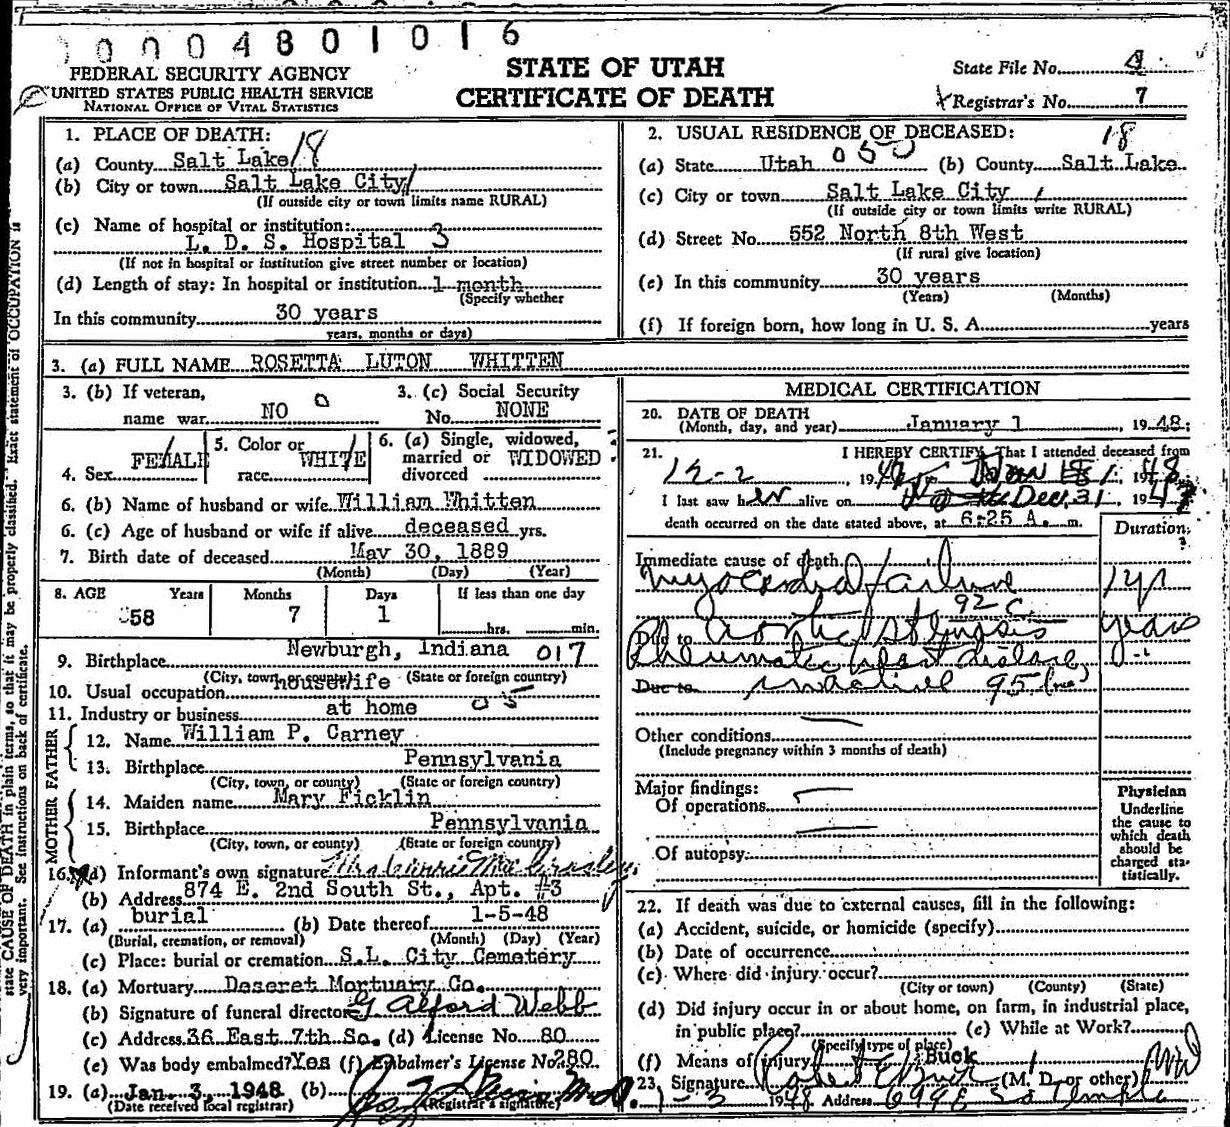 0004801016
FEDERAL SECURITY AGENCY
UNITED STATES PUBLIC HEALTH SERVICE
NATIONAL OFFICE OF VITAL STATISTICS
STATE OF UTAH
CERTIFICATE OF DEATH
State File No.
Registrar's No. 7
1. PLACE OF DEATH: 18
(a) County Salt Lake
(b) City or town Salt Lake City
(If outside city or town limits name RURAL)
(c) Name of hospital or institution:
L. D. S. Hospital 3
(If not in hospital or institution give street number or location)
(d) Length of stay: In hospital or institution 1 month
(Specify whether
In this community 30 years
years, months or days)
2. USUAL RESIDENCE OF DECEASED: 18
(a) State Utah 050 (b) County Salt Lake
(c) City or town Salt Lake City
(If outside city or town limits write RURAL)
(d) Street No. 552 North 8th West
(If rural give location)
(e) In this community 30 years
(Years) (Months)
(f) If foreign born, how long in U. S. A. years
3. (a) FULL NAME ROSETTA LUTON WHITTEN
3. (b) If veteran,
name war NO 0
3. (c) Social Security
No. NONE
4. Sex FEMALE
5. Color or
race WHITE
6. (a) Single, widowed,
married or
divorced WIDOWED
6. (b) Name of husband or wife William Whitten
6. (c) Age of husband or wife if alive deceased yrs.
7. Birth date of deceased May 30, 1889
(Month) (Day) (Year)
8. AGE Years Months Days If less than one day
58 7 1 hrs. min.
9. Birthplace Newburgh, Indiana 017
(City, town or county) (State or foreign country)
10. Usual occupation housewife
11. Industry or business at home
FATHER
12. Name William P. Carney
13. Birthplace Pennsylvania
(City, town, or county) (State or foreign country)
MOTHER
14. Maiden name Mary Ficklin
15. Birthplace Pennsylvania
(City, town, or county) (State or foreign country)
16. (a) Informant's own signature Mrs
(b) Address 874 E. 2nd South St., Apt. #3
17. (a) burial (b) Date thereof 1-5-48
(Burial, cremation, or removal) (Month) (Day) (Year)
(c) Place: burial or cremation S.L. City Cemetery
18. (a) Mortuary Deseret Mortuary Co.
(b) Signature of funeral director G Alford Webb
(c) Address 36 East 7th So. (d) License No. 80
(e) Was body embalmed? Yes (f) Embalmer's License No. 280
19. (a) Jan. 3, 1948 (b)
(Date received local registrar) (Registrar's signature)
MEDICAL CERTIFICATION
20. DATE OF DEATH
(Month, day, and year) January 1, 1948;
21. I HEREBY CERTIFY That I attended deceased from
12-2, 19 48
I last saw her alive on Dec. 31 1947
death occurred on the date stated above, at 6:25 A. m.
Duration
Immediate cause of death
myocardial failure 1 yr
92 C
Due to aortic stenosis years
Rheumatic heart disease,
Due to inactive 95
Other conditions
(Include pregnancy within 3 months of death)
Major findings:
Of operations
Of autopsy
Physician
Underline
the cause to
which death
should be
charged sta-
tistically.
22. If death was due to external causes, fill in the following:
(a) Accident, suicide, or homicide (specify)
(b) Date of occurrence
(c) Where did injury occur?
(City or town) (County) (State)
(d) Did injury occur in or about home, on farm, in industrial place,
in public place? (e) While at Work?
(Specify type of place)
(f) Means of injury Buck
23. Signature Robert E Buck (M. D. or other) MD
1-3 1948 Address 699 E So Temple
state CAUSE OF DEATH in plain terms, so that it may be properly classified. Exact statement of OCCUPATION is
very important. See instructions on back of certificate.